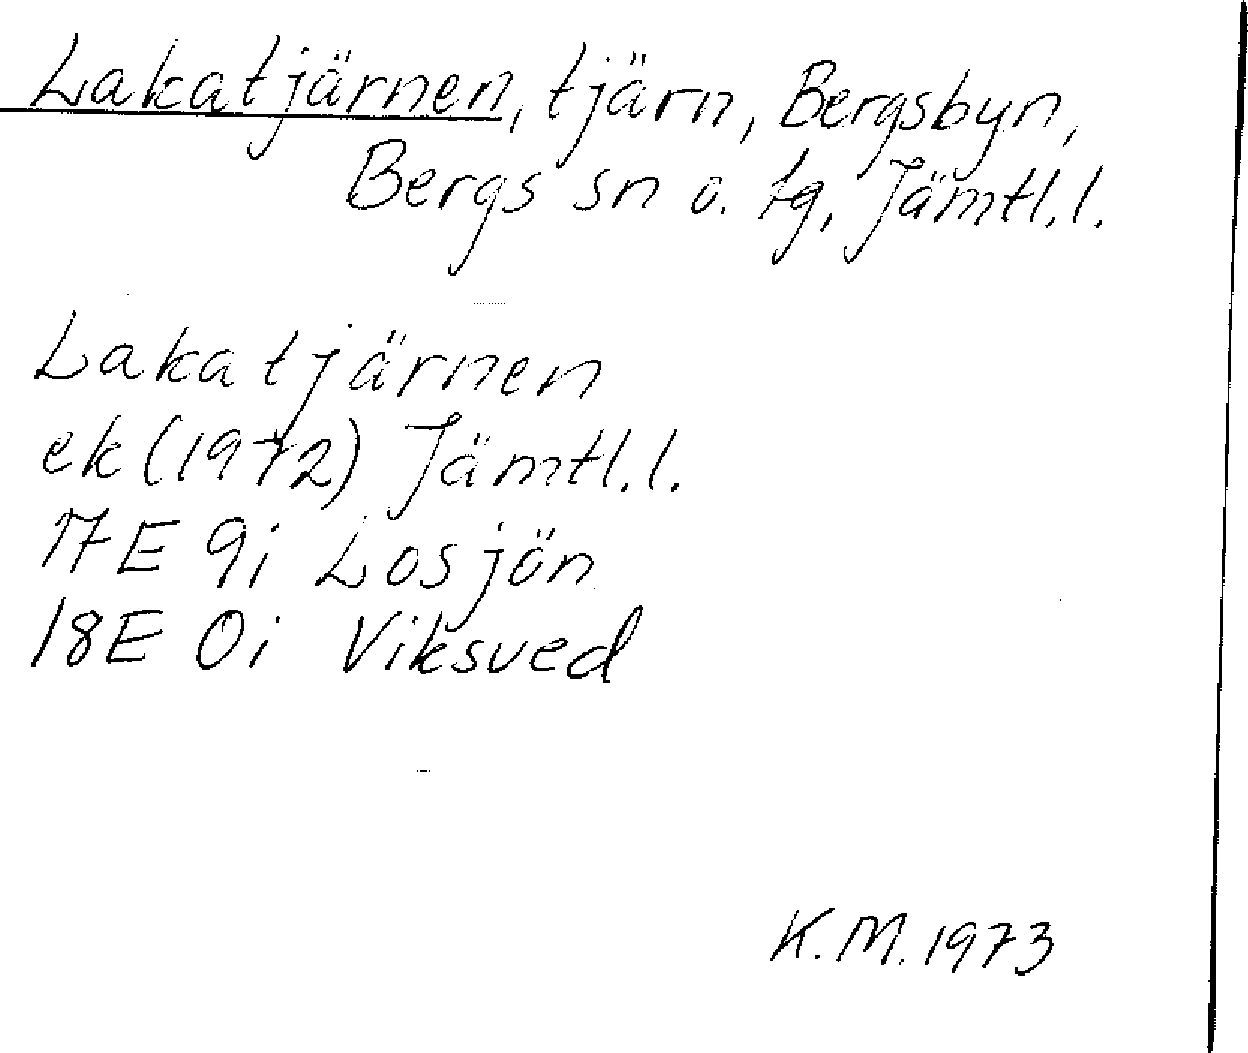 Lakatjärnen, tjärn, Bergsbyn,
Bergs sn o. tg, Jämtl.l.
Lakatjärnen
ek (1972) Jämtl.l.
17E 9i Losjön
18E 0i Viksved
K.M. 1973